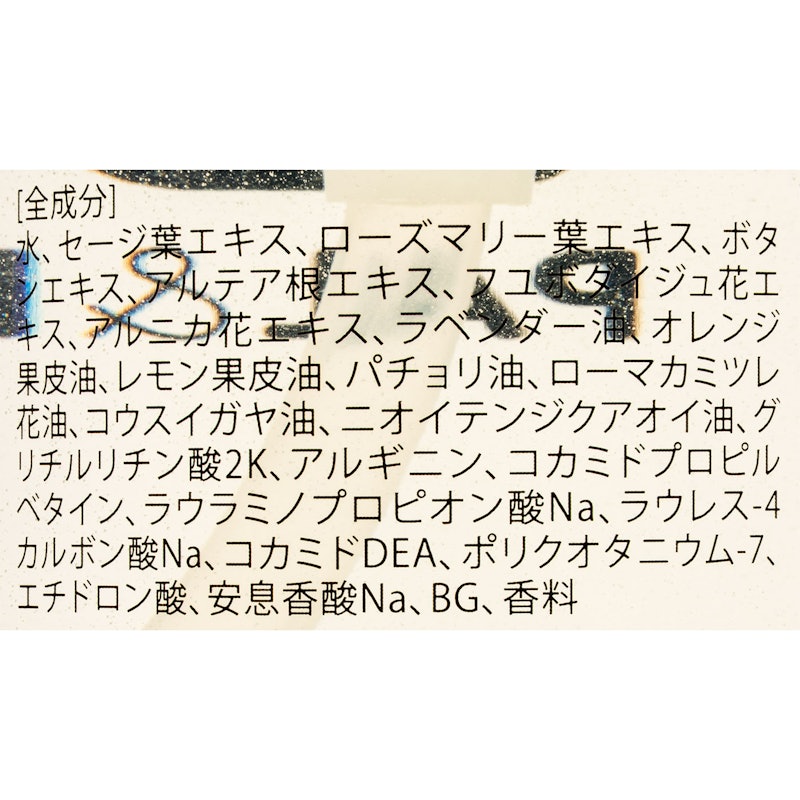 [全成分]
水、セージ葉エキス、ローズマリー葉エキス、ボタ
ンエキス、アルテア根エキス、フユボダイジュ花エ
キス、アルニカ花エキス、ラベンダー油、オレンジ
果皮油、レモン果皮油、パチョリ油、ローマカミツレ
花油、コウスイガヤ油、ニオイテンジクアオイ油、グ
リチルリチン酸2K、アルギニン、コカミドプロピル
ベタイン、ラウラミノプロピオン酸Na、ラウレス-4
カルボン酸Na、コカミドDEA、ポリクオタニウム-7、
エチドロン酸、安息香酸Na、BG、香料